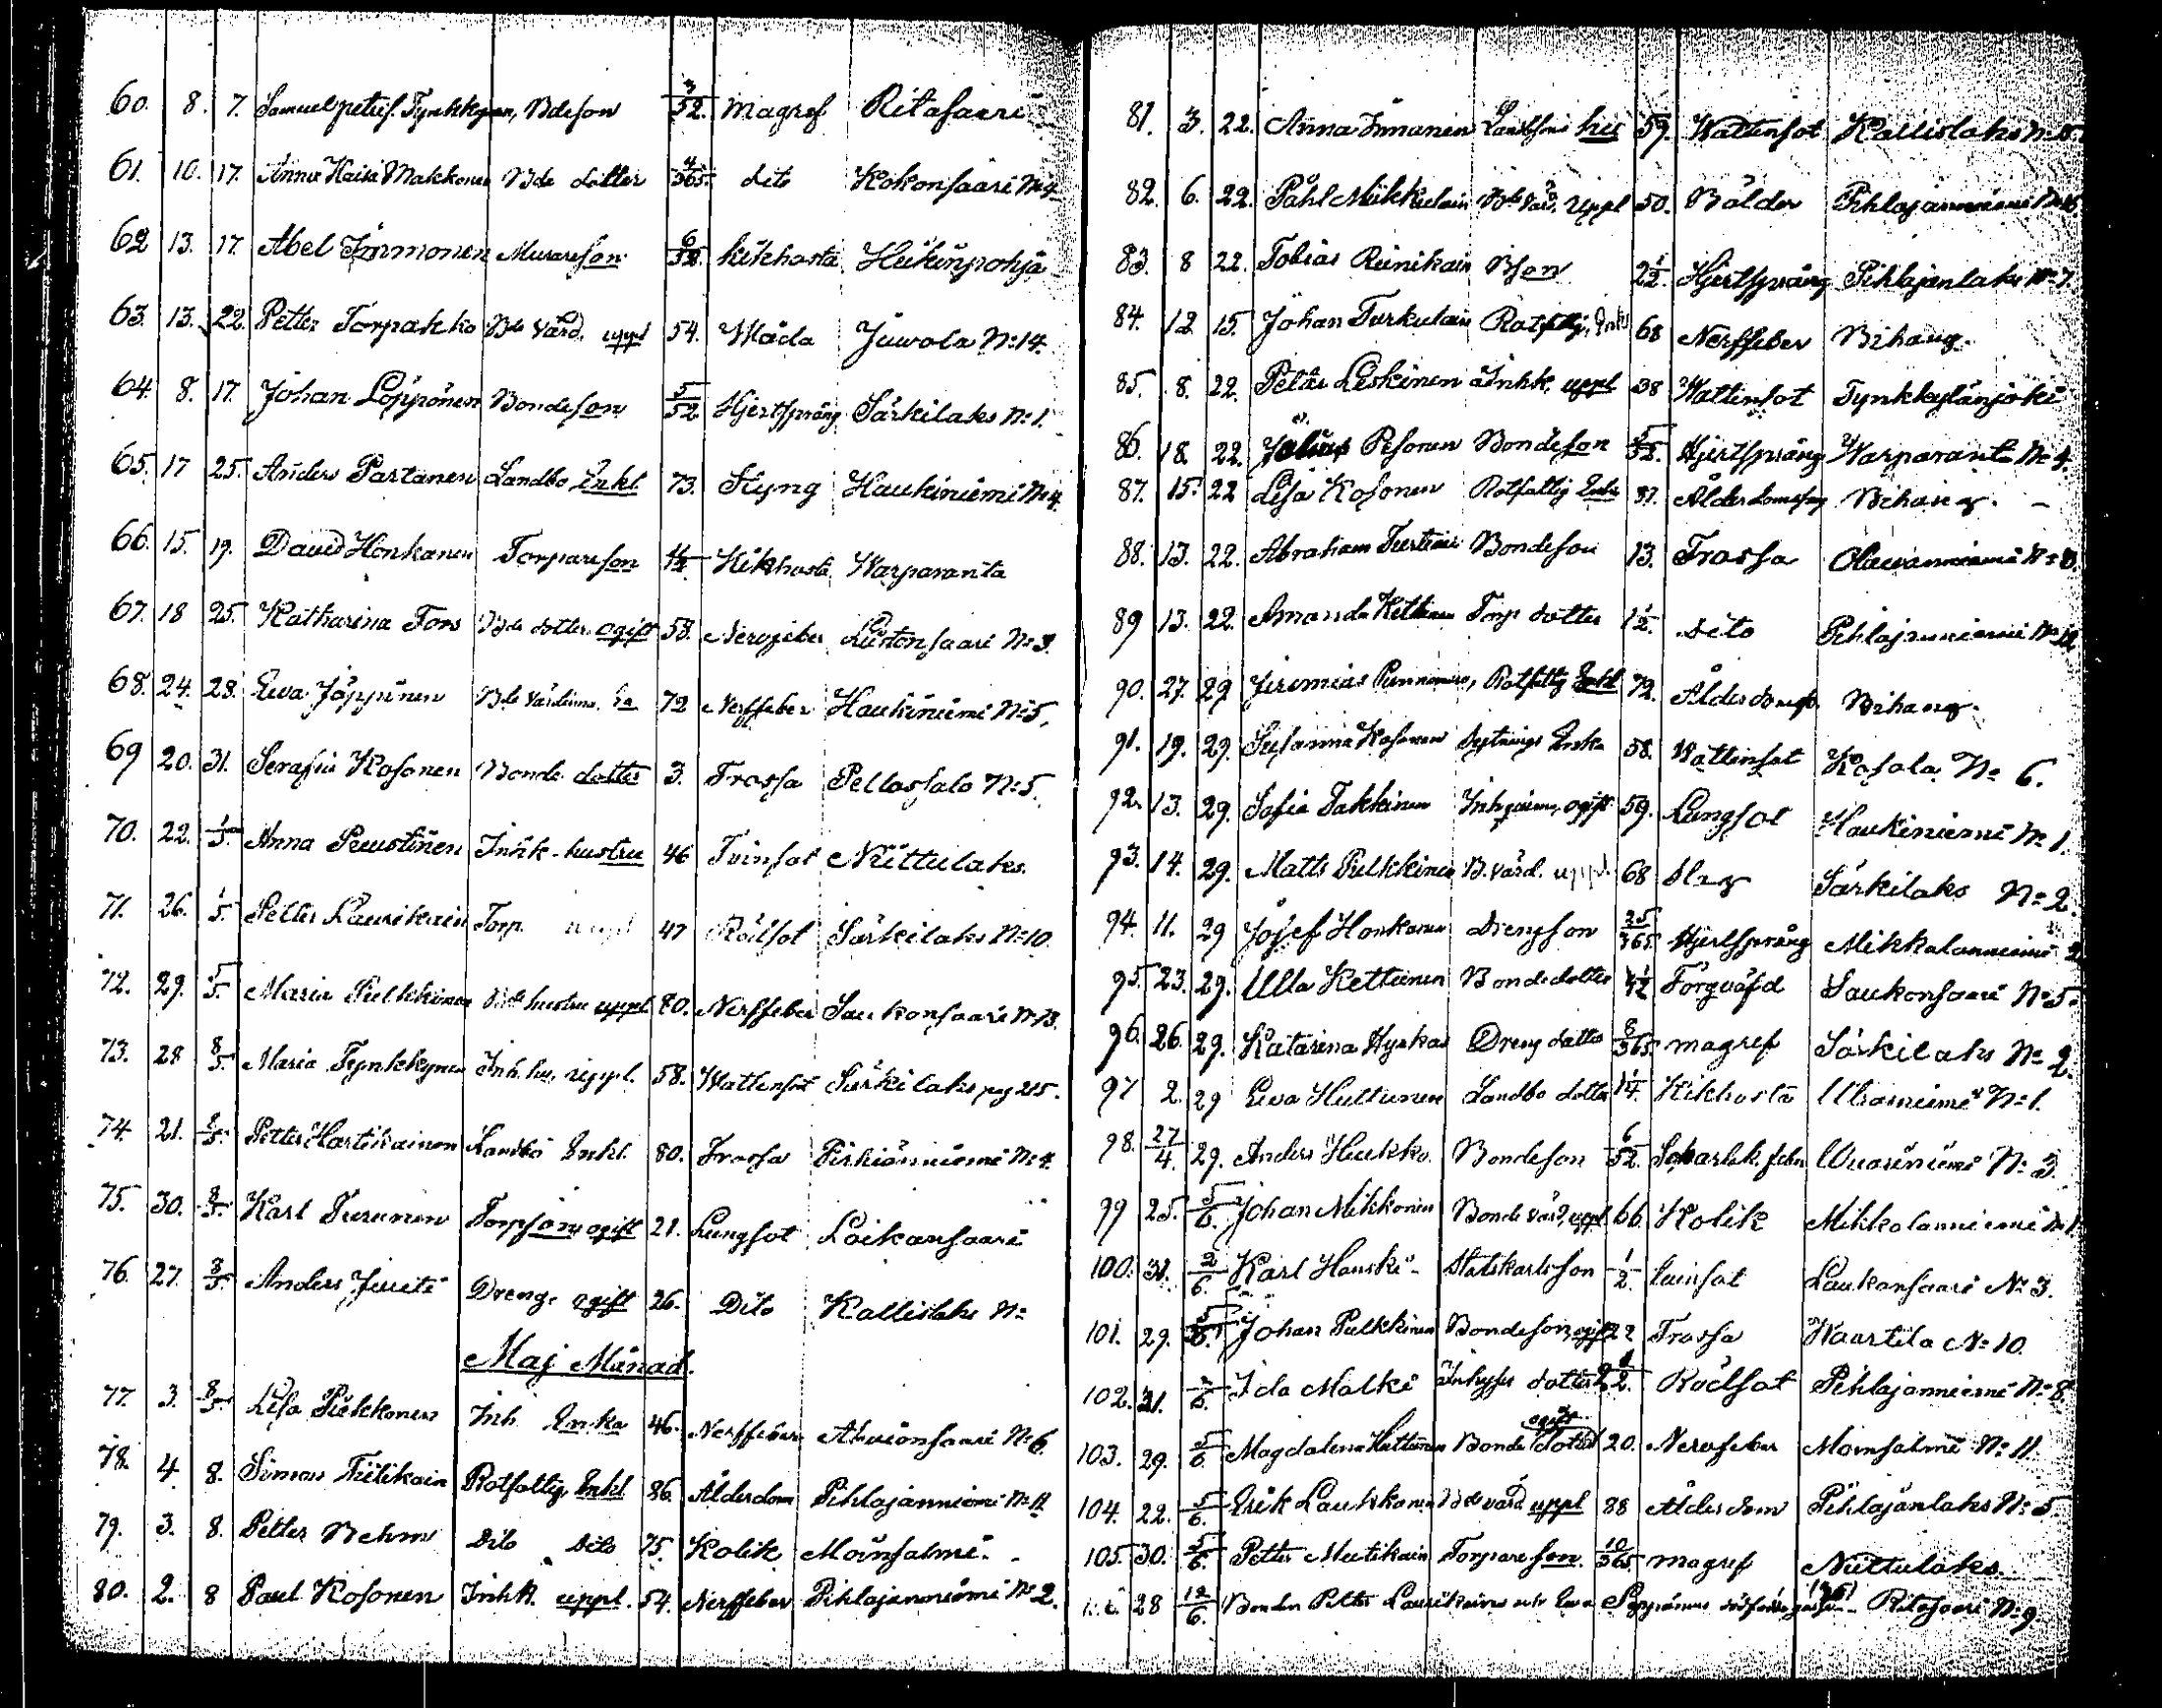 60. 8. 7. Samuel petrif. Tynkkynen, Bdeson 3/52. Magref Ritasaari
61. 10. 17. Anna Kaisa Makkonen Bde dotter 4/365. dito Kokonsaari No 4
62 13. 17. Abel Immonen Murareson 6/52. kikhosta Heikinpohja
63. 13. 22. Petter Torpakko Bde värd. uppl 54. Moda Juvola No 14.
64. 8. 17. Johan Löppönen Bondeson 5/52 Hjertsprång Särkilaks No 1.
65. 17 25. Anders Partanen Landbo Enkl 73. Styng Haukiniemi No 4.
66. 15. 19. David Honkanen Torpareson Kikhosta Warparanta
67. 18 25. Katharina Fors Bde dotter ogift 58. Nervfeber Liistonsaari No 3.
68. 24. 28. Ewa Jäppinen Bde värdinna 72 Nerffeber Haukiniemi No 5.
69 20. 31. Serafia Kosonen Bonde dotter 3. Trossa Pellossalo No 5.
70. 22. 1/5. Anna Puustinen Inhk. hustru 46 Tvinsot Niittulaks.
71. 26. 1/5. Petter Laurikain Torp. 47 Rödsot Särkilaks No 10.
72. 29. 5/5. Maria Pulkkinen Bde hustru uppl 80. Nerffeber Saukonsaari No 13.
73. 28 8/5. Maria Tynkkynen Inh. hu. uppl. 58. Wattensot Särkilaks pag 215.
74. 21. 8/5. Petter Hartikainen Landbo Enkl. 80. Trossa Pirkiänniemi No 4.
75. 30. 8/5. Karl Turunen Torpson ogift 21. Lungsot Loikansaari
76. 27. 8/5. Anders Juuti Dreng. ogift 26. Dito Kallislaks No
Maj Månad.
77. 3. 8/5. Lisa Piikkonen Inh. Enka 46. Nerffeber Ahvionsaari No 6.
78. 4. 8. Simon Tiilikain Rotfattig Enkl 86. Ålderdom Pihlajanniemi No 12
79. 3. 8. Petter Behm Dito Dito 75. Kolik Moinsalmi.
80. 2. 8 Paul Kosonen Inhk. uppl. 54. Nerffeber Pihlajanniemi No 2.
81. 3. 22. Anna Immonen Landbons hu 59. Wattensot Kallislaks No 8.
82. 6. 22. Påhl Miikkulain Bde värd. uppl 50. Bålder Pihlajanniemi
83. 8 22. Tobias Reinikain Bson 2 1/2 Hjertsprång Pihlajanlaks No 7.
84. 12 15. Johan Turkulain Rotfattig. Enkl 68 Nerffeber Bihang.
85. 8. 22. Petter Leskinen Inhk. uppl 38 Wattensot Tynkkylänjoki
86. 18. 22. Pesonen Bondeson 5/52. Hjertsprång Warparanta No 4.
87. 15. 22 Lisa Kosonen Rotfattig Enka 87. Ålderdomsfag Bihang.
88. 13. 22. Abraham Turtiain Bondeson 13. Trossa Olavanniemi
89 13. 22. Amanda Kettunen Torp dotter 1 1/2. Dito Pihlajanniemi
90. 27. 29. Jeremias Punnonen, Rotfattig Enkl 72. Ålderdomsfag Bihang.
91. 19. 29. Susanna Kosonen Sytnings Enka 58. Wattensot Kosola No 6.
92. 13. 29. Sofia Takkinen Inhysinn. ogift 59. Lungsot Haukiniemi No 1.
93. 14. 29. Matts Pulkkinen B. värd. uppl. 68 Slag Särkilaks No 2.
94. 11. 29 Josef Honkanen Drengson 25/365 Hjertsprång Mikkolanniemi 2
95. 23. 29. Ulla Kettunen Bondedotter Saukonsaari No 5.
96. 26. 29. Katarina Hyskas Dreng dotter 8/365 magref Särkilaks No 2.
97 2. 29 Ewa Huttunen Landbo dotter Kikhosta No 1.
98. 27/4. 29. Anders Hukko. Bondeson 6/52. Scharlak. feber No 3.
99 25. 5/6. Johan Mikkonen Bonde värd. uppl 66. Kolik Mikkolanniemi No 1.
100. 31. 2/6. Karl Hauski Statskarlsson 1/2. tvinsot Laukansaari No 3.
101. 29. 5/6. Johan Pulkkinen Bondeson ogift 22 Trossa Haartila No 10.
102. 31. 5/6. Ida Malki Inhyses dotter Rödsot Pihlajanniemi No 8.
103. 29. 5/6. Magdalena Huttunen Bonde dotter ogift 20. Nervfeber Moinsalmi No 11.
104. 22. 5/6. Erik Lautskanen Bde värd uppl 88 Ålderdom Pihlajanlaks No 5.
105. 30. 5/6. Petter Mutikain Torpareson. 10/365 magref Niittulaks.
28 12/6. Bonden Petter Laurikainen och Ewa Ritasaari No 9.